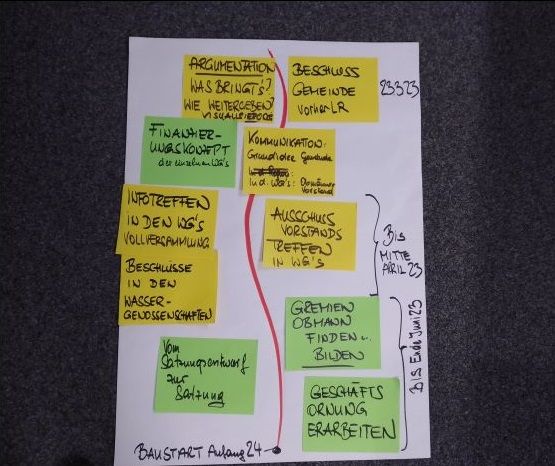 ARGUMENTATION
WAS BRINGT'S?
WIE WEITERGEBEN?
VISUALISIERUNG
BESCHLUSS
GEMEINDE
vorher LR
23.3.23
FINANZIER-
UNGSKONZEPT
der einzelnen WG's
KOMMUNIKATION:
Grundidee Gemeinde
In d. WG's: Obmänner
Vorstand
INFOTREFFEN
IN DEN WG'S
VOLLVERSAMMLUNG
AUSSCHUSS
VORSTANDS
TREFFEN
IN WG'S
BIS
MITTE
APRIL 23
BESCHLÜSSE
IN DEN
WASSER-
GENOSSENSCHAFTEN
GREMIEN
OBMANN
FINDEN u.
BILDEN
BIS Ende Juni 23
Vom
Satzungsentwurf
zur
Satzung
GESCHÄFTS
ORNUNG
ERARBEITEN
BAUSTART Anfang 24